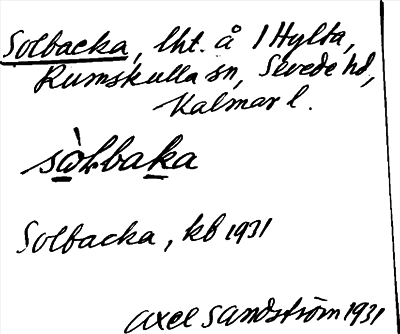 Solbacka, lht. å 1 Hylta,
Rumskulla sn, Sevede hd,
Kalmar l.
sòlbaka
Solbacka, kb 1931
Axel Sandström 1931